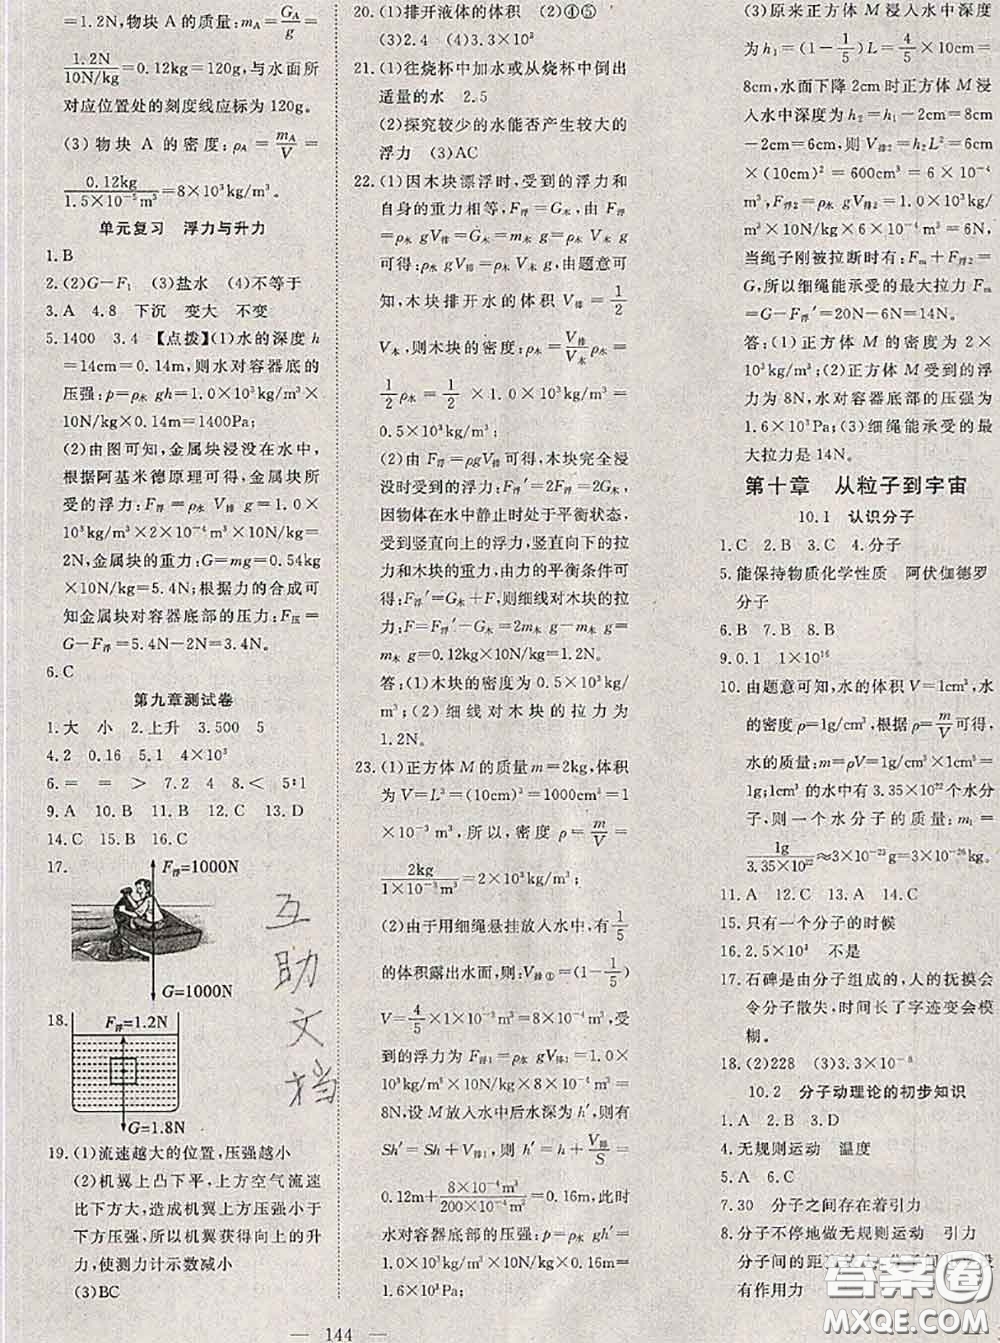 1.2N，物块 A 的质量：m_A = G_A/g =
1.2N/10N/kg =0.12kg=120g，与水面所
对应位置处的刻度线应标为 120g。
(3)物块 A 的密度：ρ_A = m_A/V =
0.12kg/1.5×10⁻⁵m³ =8×10³kg/m³。
单元复习 浮力与升力
1.B
2.(2)G－F₁ (3)盐水 (4)不等于
3.A 4.8 下沉 变大 不变
5.1400 3.4 【点拨】(1)水的深度 h
=14cm=0.14m，则水对容器底的
压强：p=ρ水 gh=1.0×10³kg/m³×
10N/kg×0.14m=1400Pa；
(2)由图可知，金属块浸没在水中，
根据阿基米德原理可得，金属块所
受的浮力：F浮=ρ水 gV排=1.0×
10³kg/m³×2×10⁻⁴m³×10N/kg=
2N，金属块的重力：G=mg=0.54kg
×10N/kg=5.4N；根据力的合成可
知金属块对容器底部的压力：F压=
G－F浮=5.4N－2N=3.4N。
6.C
第九章测试卷
1.大 小 2.上升 3.500 5
4.2 0.16 5.1 4×10³
6.= = > 7.2 4 8.& 5∶1
9.A 10.B 11.B 12.C 13.D
14.C 15.B 16.C
17.
F浮=1000N
G=1000N
18.
F浮=1.2N
G=1.8N
19.(1)流速越大的位置，压强越小
(2)机翼上凸下平，上方空气流速
比下方大，造成机翼上方压强小于
下方压强，所以机翼获得向上的升
力，使测力计示数减小
(3)BC
20.(1)排开液体的体积 (2)④⑤
(3)2.4 (4)3.3×10³
21.(1)往烧杯中加水或从烧杯中倒出
适量的水 2.5
(2)探究较少的水能否产生较大的
浮力 (3)AC
22.(1)因木块漂浮时，受到的浮力和
自身的重力相等，F浮=G木，由 F浮
=ρ水 gV排=G木=mg=ρ木 gV木
可得：ρ水 gV排=ρ木 gV木；由题意可
得，木块排开水的体积 V排=1/2
V木，则木块的密度：ρ木=V排/V木 ρ水=
1/2 ρ水 = 1/2 ×1.0×10³kg/m³ =
0.5×10³kg/m³；
(2)由 F浮=ρgV排得，木块完全浸
没时受到的浮力：F浮′=2F浮=2G木，
因物体在水中静止时处于平衡状态，
受到竖直向上的浮力，竖直向下的拉
力和重力，所以，由力的平衡条件可
得：F浮′=G木+F，则细线对木块的拉
力：F=F浮′－G木=2G木－G木=G木
=m木 g=0.12kg×10N/kg=1.2N。
答：(1)木块的密度为 0.5×10³kg/
m³；(2)细线对木块的拉力为
1.2N。
23.(1)正方体 M 的质量 m=2kg，体积
为 V=L³=(10cm)³=1000cm³=1
×10⁻³m³，所以，密度 ρ=m/V=
2kg/1×10⁻³m³ =2×10³kg/m³；
(2)由于用细绳悬挂放入水中，有 1/5
的体积露出水面，则：V排①=(1－1/5)
V=4/5×1×10⁻³m³=8×10⁻⁴m³，受
到的浮力为 F浮1=ρ水 gV排1=1.0×
10³kg/m³×10N/kg×8×10⁻⁴m³=
8N，设 M 放入水中后水深为 h′，则：
Sh′=Sh+V排1；所以 h′=h+V排1/S=
0.12m+8×10⁻⁴m³/200×10⁻⁴m²=0.16m，此时
水对容器底部的压强：p=ρ水 gh′=
1.0×10³kg/m³×10N/kg×0.16m=
1.6×10³Pa；
(3)原来正方体 M 浸入水中深度
为 h₁=(1－1/5)L=4/5×10cm=
8cm，水面下降 2cm时正方体 M 浸
入水中深度为 h₂=h₁－2cm=8cm
－2cm=6cm，所以，V排2=h₂L²=6cm
×(10cm)²=600cm³=6×10⁻⁴m³，受
到的浮力为：F浮2=ρ水 gV排2=1.0×10³kg/
m³×10N/kg×6×10⁻⁴m³=6N，
当绳子刚被拉断时有：F_m+F浮2=
G，所以细绳能承受的最大拉力 F_m
=G－F浮′=20N－6N=14N。
答：(1)正方体 M 的密度为 2×
10³kg/m³；(2)正方体 M 受到的浮
力为 8N，水对容器底部的压强为
1.6×10³Pa；(3)细绳能承受的最
大拉力是 14N。
第十章 从粒子到宇宙
10.1 认识分子
1.C 2.B 3.C 4.分子
5.能保持物质化学性质 阿伏伽德罗
分子
6.B 7.B 8.B
9.0.1 1×10¹⁶
10.由题意可知，水的体积 V=1cm³，水
的密度 ρ=1g/cm³，根据 ρ=m/V可得，
水的质量：m=ρV=1g/cm³×1cm³=
1g；1cm³ 水中有 3.35×10²²个水分
子，则一个水分子的质量：m₁=
1g/3.35×10²²≈3×10⁻²³g=3×10⁻²⁶kg。
11.A 12.C 13.A 14.C
15.只有一个分子的时候
16.2.5×10³ 不是
17.石碑是由分子组成的，人的抚摸会
令分子散失，时间长了字迹变会模
糊。
18.(2)228 (3)3.3×10⁻⁸
10.2 分子动理论的初步知识
1.A 2.B 3.D
4.无规则运动 温度
5.A 6.C
7.30 分子之间存在着引力
8.分子不停地做无规则运动 引力
分子间的距
有作用力
互助文档
答案圈
MXQE.COM
— 144 —